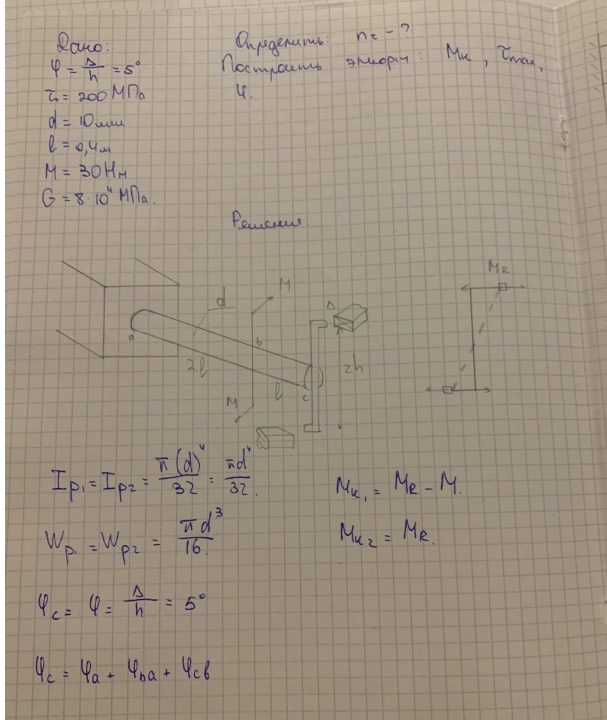 Дано:
φ = Δ/h = 5°
τт = 200 МПа
d = 10 мм
l = 0,4 м
M = 30 Нм
G = 8·10⁴ МПа.
Определить: nт - ?
Построить эпюры: Mк, τmax,
φ.
Решение
d
M
Δ
a
b
2l
l
c
M
2h
MR
Ip₁ = Ip₂ = π(d)⁴/32 = πd⁴/32.
Mк₁ = MR - M.
Wp₁ = Wp₂ = πd³/16
Mк₂ = MR.
φc = φ = Δ/h = 5°
φc = φa + φba + φcb